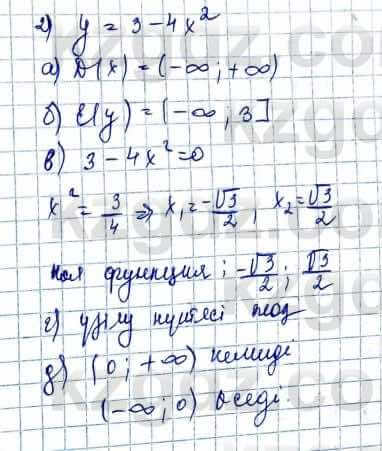 2) y = 3 - 4x²
а) D(x) = (-∞; +∞)
б) E(y) = (-∞; 3]
в) 3 - 4x² = 0
x² = 3/4 ⇒ x₁ = -√3/2, x₂ = √3/2
нол функция: -√3/2; √3/2
г) үзілу нүктесі жоқ
д) (0; +∞) кемиді
(-∞; 0) өседі